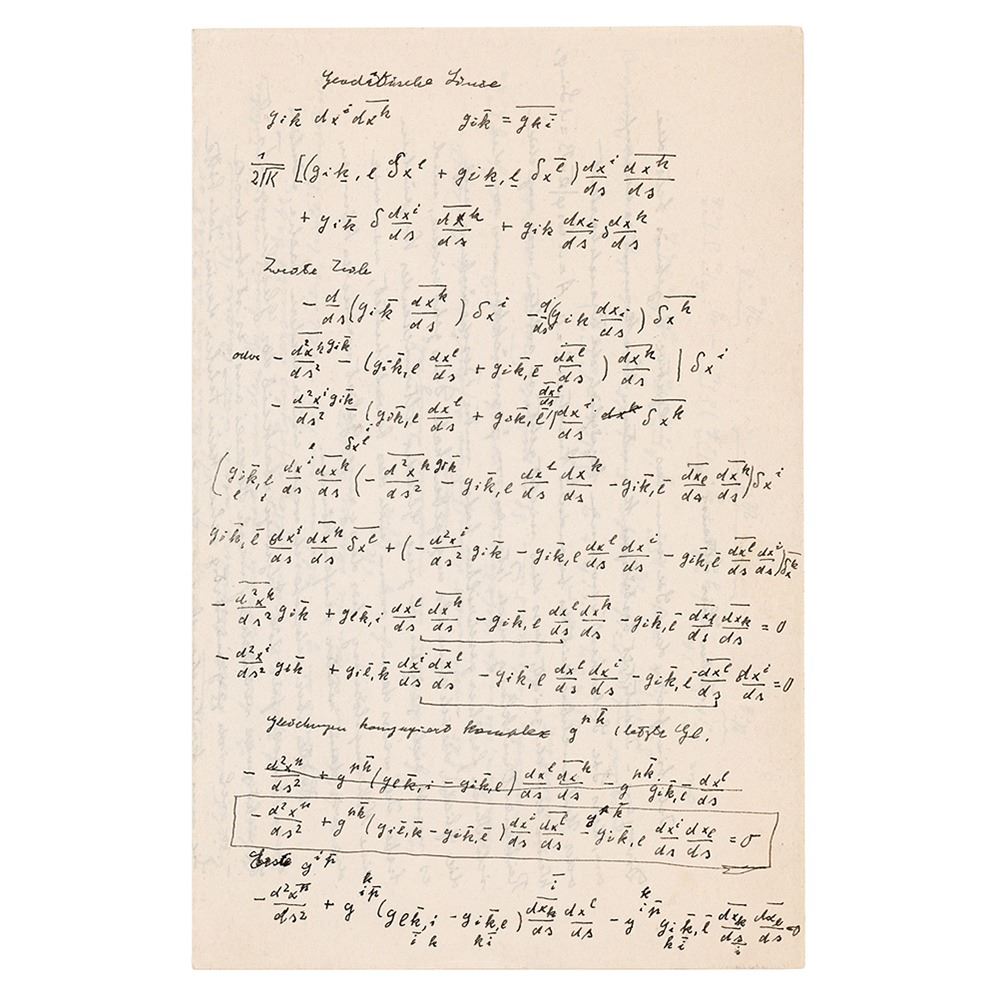 Geodätische Linie
g_{i\bar{k}} dx^i \overline{dx^k}   g_{i\bar{k}} = \overline{g_{k\bar{i}}}
\frac{1}{2\sqrt{K}} [(g_{i\bar{k},l} δx^l + g_{i\bar{k},\bar{l}} \overline{δx^l}) \frac{dx^i}{ds} \frac{\overline{dx^k}}{ds}
+ g_{i\bar{k}} δ\frac{dx^i}{ds} \frac{\overline{dx^k}}{ds} + g_{ik} \frac{dx_i}{ds} δ\frac{\overline{dx^k}}{ds}
Zweite Zeile
- \frac{d}{ds}(g_{i\bar{k}} \frac{\overline{dx^k}}{ds}) δx^i - \frac{d}{ds}(g_{i\bar{k}} \frac{dx_i}{ds}) \overline{δx^k}
oder - \frac{\overline{d^2x^k}}{ds^2} g_{i\bar{k}} - (g_{i\bar{k},l} \frac{dx^l}{ds} + g_{i\bar{k},\bar{l}} \frac{\overline{dx^l}}{ds}) \frac{\overline{dx^k}}{ds} | δx^i
- \frac{d^2x^i}{ds^2} g_{i\bar{k}} - (g_{i\bar{k},l} \frac{dx^l}{ds} + g_{i\bar{k},\bar{l}} \frac{\overline{dx^l}}{ds}) \frac{dx^i}{ds} \overline{δx^k}
(g_{i\bar{k},l} \frac{dx^i}{ds} \frac{\overline{dx^k}}{ds} δx^l (- \frac{\overline{d^2x^k}}{ds^2} g_{i\bar{k}} - g_{i\bar{k},l} \frac{dx^l}{ds} \frac{\overline{dx^k}}{ds} - g_{i\bar{k},\bar{l}} \frac{\overline{dx_l}}{ds} \frac{\overline{dx^k}}{ds}) δx^i
g_{i\bar{k},\bar{l}} \frac{dx^i}{ds} \frac{\overline{dx^k}}{ds} \overline{δx^l} + (- \frac{d^2x^i}{ds^2} g_{i\bar{k}} - g_{i\bar{k},l} \frac{dx^l}{ds} \frac{dx^i}{ds} - g_{i\bar{k},\bar{l}} \frac{\overline{dx^l}}{ds} \frac{dx^i}{ds}) \overline{δx^k}
- \frac{\overline{d^2x^k}}{ds^2} g_{i\bar{k}} + g_{l\bar{k},i} \frac{dx^l}{ds} \frac{\overline{dx^k}}{ds} - g_{i\bar{k},l} \frac{dx^l}{ds} \frac{\overline{dx^k}}{ds} - g_{i\bar{k},\bar{l}} \frac{\overline{dx_l}}{ds} \frac{\overline{dx_k}}{ds} = 0
- \frac{d^2x^i}{ds^2} g_{i\bar{k}} + g_{i\bar{l},\bar{k}} \frac{dx^i}{ds} \frac{\overline{dx^l}}{ds} - g_{i\bar{k},l} \frac{dx^l}{ds} \frac{dx^i}{ds} - g_{i\bar{k},\bar{l}} \frac{\overline{dx^l}}{ds} \frac{dx^i}{ds} = 0
Gleichungen konjugiert komplex g^{n\bar{k}} (letzte Gl.
- \frac{d^2x^n}{ds^2} + g^{n\bar{k}} (g_{l\bar{k},i} - g_{i\bar{k},l}) \frac{dx^l}{ds} \frac{\overline{dx^k}}{ds} - g^{n\bar{k}} g_{i\bar{k},\bar{l}} \frac{dx^l}{ds}
- \frac{d^2x^n}{ds^2} + g^{n\bar{k}} (g_{i\bar{l},\bar{k}} - g_{i\bar{k},\bar{l}}) \frac{dx^i}{ds} \frac{\overline{dx^l}}{ds} - g^{n\bar{k}} g_{i\bar{k},l} \frac{dx^i}{ds} \frac{dx_l}{ds} = 0
Erste g^{i\bar{n}}
- \frac{\overline{d^2x^n}}{ds^2} + g^{i\bar{n}} (g_{l\bar{k},i} - g_{i\bar{k},l}) \frac{\overline{dx_k}}{ds} \frac{dx^l}{ds} - g^{i\bar{n}} g_{i\bar{k},\bar{l}} \frac{\overline{dx_k}}{ds} \frac{\overline{dx_l}}{ds} = 0